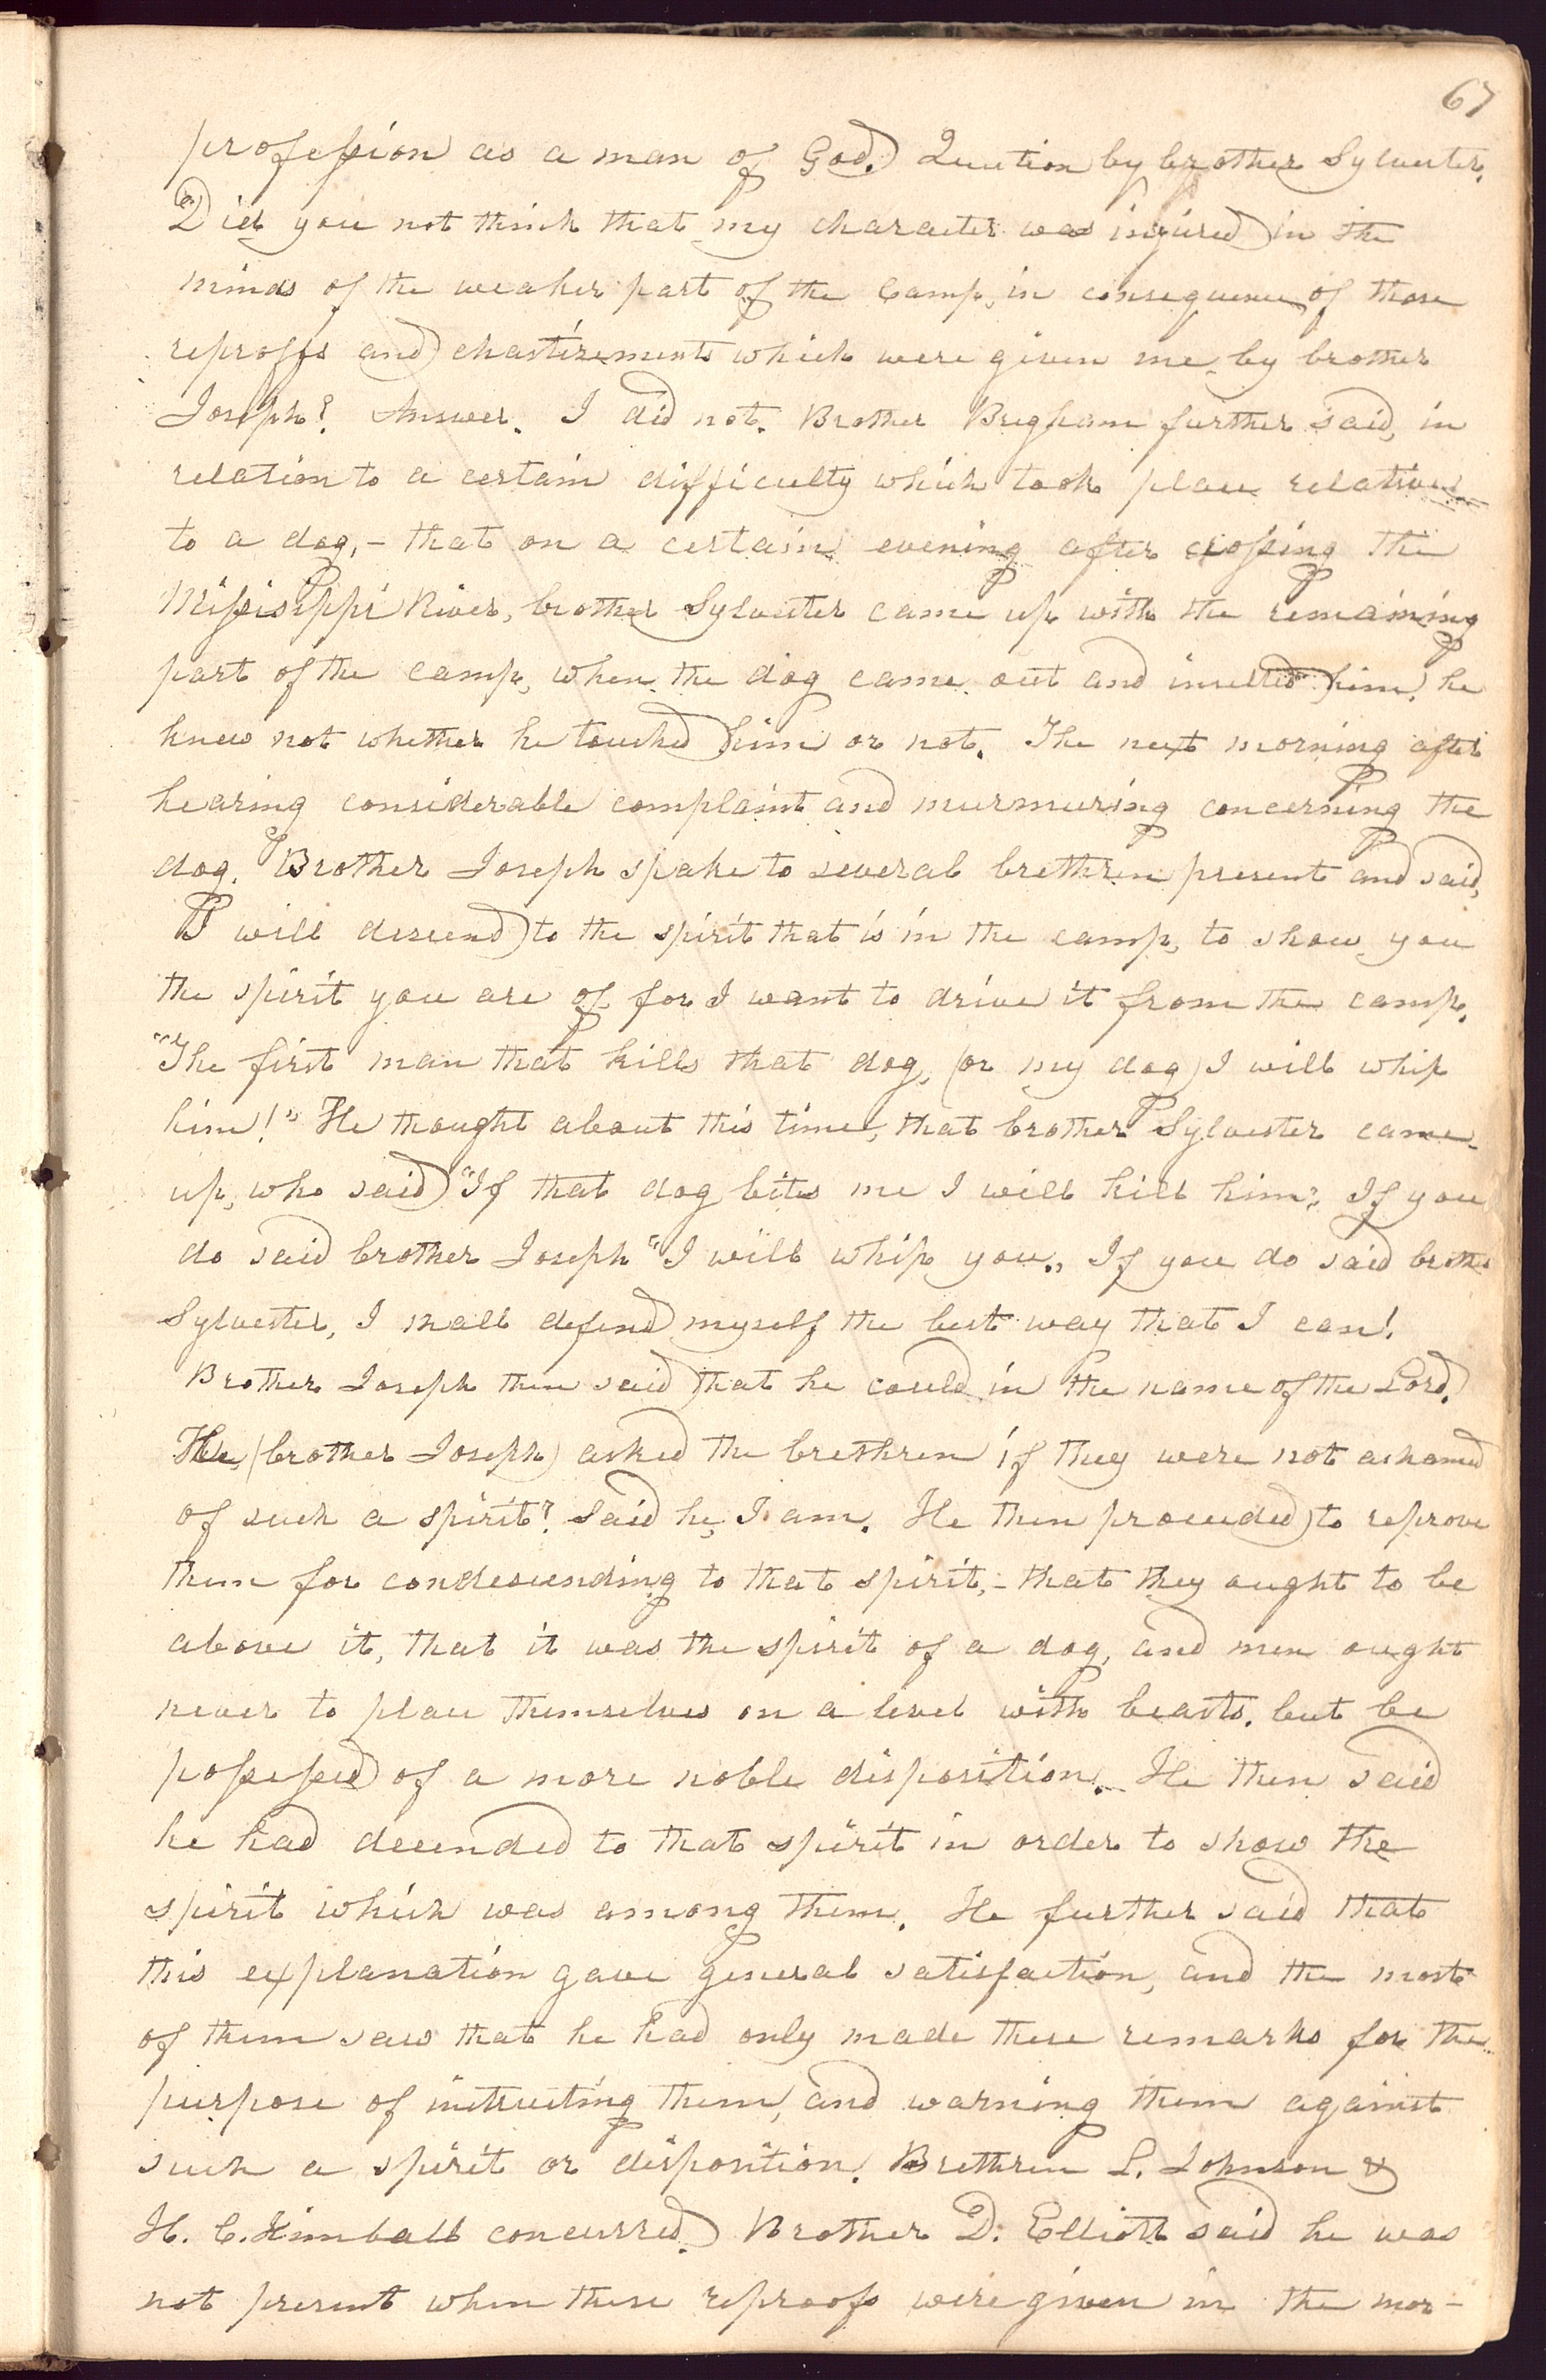 67
profession as a man of God. Question by brother Sylvester.
Did you not think that my character was injured in the
minds of the weaker part of the Camp, in consequence of those
reproffs and chastizements which were given me by brother
Joseph? Answer. I did not. Brother Brigham further said, in
relation to a certain difficulty which took place relative
to a dog, – that on a certain evening after crossing the
Missisippi River, brother Sylvester came up with the remaining
part of the camp, when the dog came out and insulted him, he
knew not whether he touched him or not. The next morning after
hearing considerable complaint and murmuring concerning the
dog. Brother Joseph spake to several brethren present and said,
I will descend to the spirit that is in the camp, to show you
the spirit you are of for I want to drive it from the camp.
"The first man that kills that dog, (or my dog) I will whip
him!" He thought about this time, that brother Sylvester came
up, who said "If that dog bites me I will kill him". If you
do said brother Joseph "I will whip you." If you do said brother
Sylvester, I shall defend myself the best way that I can!
Brother Joseph then said that he could in the name of the Lord.
He (brother Joseph) asked the brethren if they were not ashamed
of such a spirit? Said he, I am. He then proceeded to reprove
them for condescending to that spirit, – that they ought to be
above it, that it was the spirit of a dog, and men ought
never to place themselves on a level with beasts, but be
possessed of a more noble disposition. He then said
he had decended to that spirit in order to show the
spirit which was among them. He further said that
this explanation gave general satisfaction, and the most
of them saw that he had only made these remarks for the
purpose of instructing them, and warning them against
such a spirit or disposition. Brethren L. Johnson &
H. C. Kimball concurred. Brother D. Elliott said he was
not present when these reproofs were given in the mor-